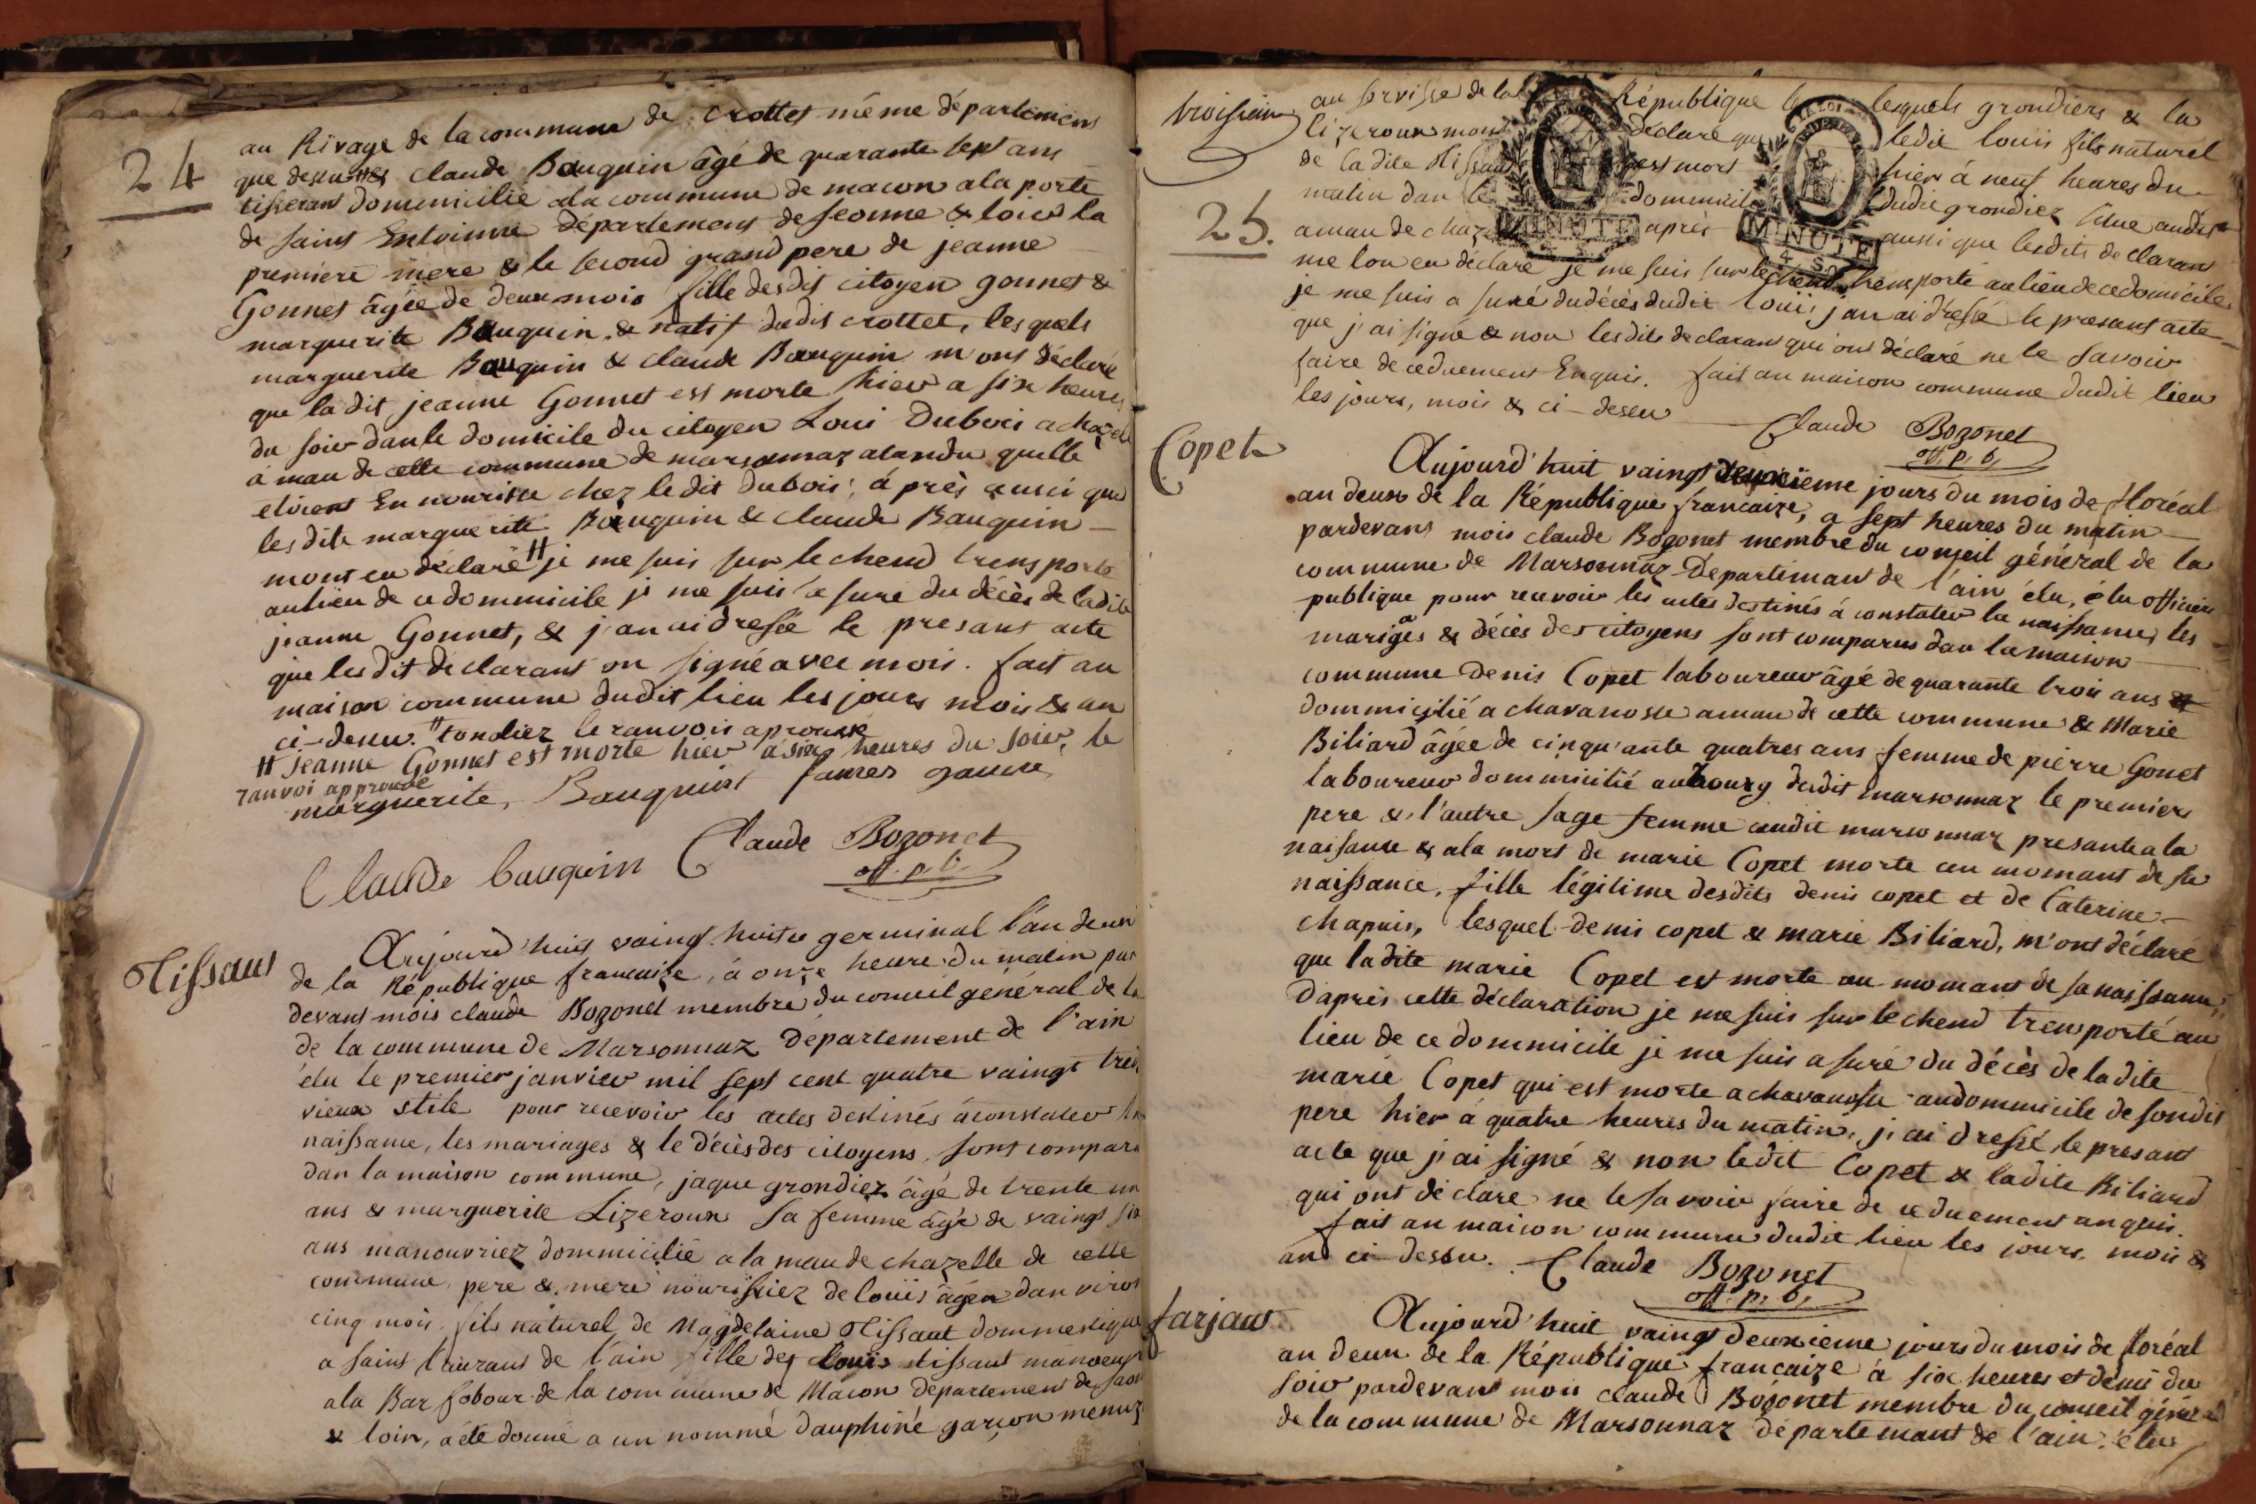 24
au Rivage de la commune de crottet même département
que dessus Claude Bauquin âgé de quarante sept ans
tisserant dommicilié a la commune de macon a la porte
de saint Entoinne département de seonne & loir la
premiere mere & le second grand pere de jeanne
Gonnet âgée de deux mois fille desdit citoyen gonnet &
marguerite Bauquin & natif dudit crottet, lesquels
marguerite Bauquin & claude Bauquin m'ont déclaré
que ladit jeanne Gonnet est morte hier a six heures
du soir dan le domicile du citoyen Loui Dubois a chazelle
a mau de cette commune de marsonnaz atandu quelle
etoient En nourisse chez ledit dubois, á près aussi que
lesdits marguerite Bauquin & claude Bauquin
mont en déclaré # je me suis sur le chend trensporté
au lieu de ce dommicile je me suis asuré du décès de ladite
jeanne Gonnet, & j'an ai dressé le presant acte
que lesdit declarant on signé avec mois. fait au
maison commune dudit lieu les jours mois & an
ci-dessu. # tondiez le ranvois aprouvé
# Jeanne Gonnet est morte hier a six heures du soir, le
ranvoi approuvé
marguerite, Bauquint famer gaune
Claude bauquin Claude Bozonet
off. p. b.
Tissaut
Aujourd'huit vaingt huite germinal l'an deux
de la République francaise, á onze heure du matin par
devant mois claude Bozonet membre du conseil général de la
de la commune de Marsonnaz département de l'ain
élu le premier janvier mil sept cent quatre vaingt trei
vieux stile pour recevoir les actes destinés á constater la
naissance, les mariages & le décès des citoyens, sont comparu
dan la maison commune, jaque grondiez âgé de trente un
ans & marguerite Lizeroux sa femme âgé de vaingt six
ans manouvriez dommicilié a la mau de chazelle de cette
commune, pere & mere nourissiez de louis âgéz dan viron
cinq mois, fils naturel de Magdelaine Tissaut dommestique
a saint laurans de l'ain fille de louis tissaut manoeuv
a la Bar fobour de la commune de Macon département de saon
& loir, a été donné a un nommé dauphiné garçon menuz
troisieme
25.
au servisse de la République lesquels grondiers & la
lizeroux mont déclaré que ledit louis fils naturel
de ladite Tissaut est mort hier á neuf heures du
matin dan le domicile dudit grondiez
a mau de chaz après aussi que lesdits declarans
me lon en déclaré je me suis sur le chend trensporté au lieu de ce domicile
je me suis a suré du décès dudit louis, j'an ai dressé le presant acte
que j'ai signé & non lesdits declarans qui ont déclaré ne le savoir
faire de ce duement Enquis. fait au maison commune dudit lieu
les jours, mois & ci-dessu
Claude Bozonet
off. p. b.
MINUTE
MINUTE
Copet
Aujourd'huit vaingt deuxième jours du mois de floréal
an deux de la République francaize, a sept heures du matin
pardevans mois claude Bozonet membre du conseil général de la
commune de Marsonnaz Départimant de l'ain élu, élu officier
publique pour recevoir les actes destinés á constater la naissance, les
mariages & décès des citoyens sont comparus dan la maison
commune Denis Copet laboureur âgé de quarante trois ans
dommicilié a chavanosse a mau de cette commune & Marie
Biliard âgée de cinqu'ante quatres ans femme de pierre Gonet
laboureur dommicilié au bourg dudit marsonnaz le premiere
pere & l'autre sage femme audit marsonnaz presante a la
naisance & a la mort de marie Copet morte au momant de sa
naissance, fille légitime desdits denis copet et de Caterine
chapuis, lesquel denis copet & marie Biliard, m'ont déclaré
que ladite marie Copet est morte au momant de sa naissance,
D'aprés cette déclaration je me suis sur le chend trensporté au
lieu de ce dommicile je me suis asuré du décès de ladite
marie Copet qui est morte a chavanosse au dommicile de sondit
pere hier á quatre heures du matin, j'ai dressé le presant
acte que j'ai signé & non ledit Copet & ladite Biliard
qui ont déclaré ne le savoir faire de ce duement anquis.
fait au maison commune dudit lieu les jours, mois &
and ci-dessu. Claude Bozonet
off. p. b.
farjaut
Aujourd'huit vaingt deuxieme jours du mois de floréal
an deux de la République francaize á six heures et demi du
soir pardevant mois claude Bozonet membre du conseil général
de la commune de Marsonnaz départemant de l'ain, élu